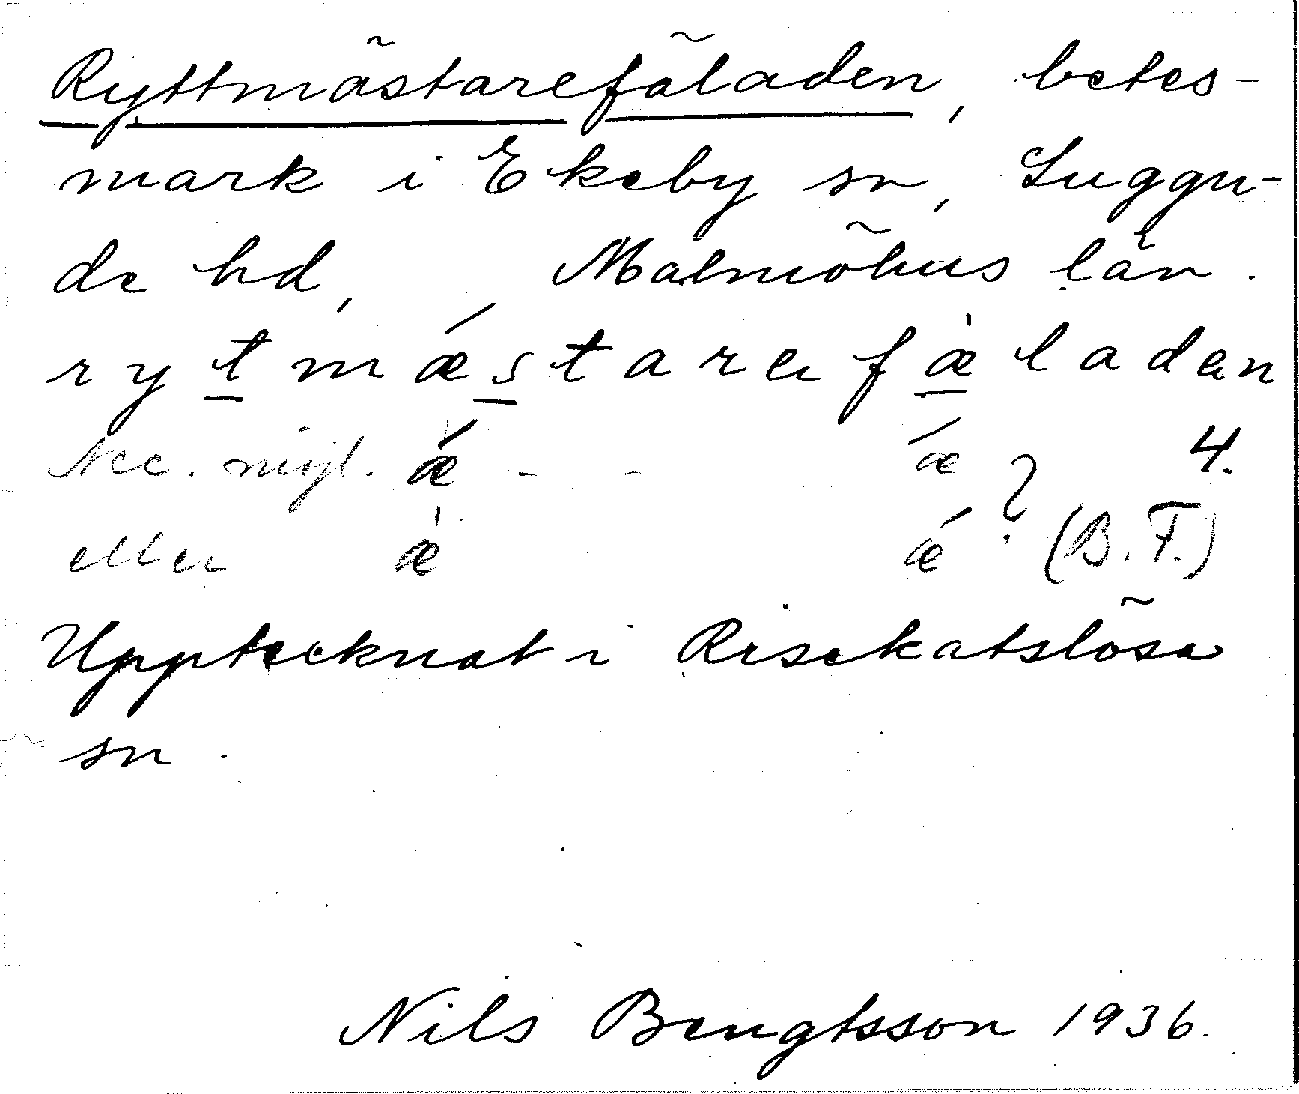 Ryttmästarefäladen, betes-
mark i Ekeby sn, Luggu-
de hd, Malmöhus län.
rytmǽstarefæ̀laden
Acc. mijl. ǽ - - ǽ 4.
eller æ̀ ǽ ? (B. F.)
Upptecknat i Risekatslösa
sn.
Nils Bengtsson 1936.